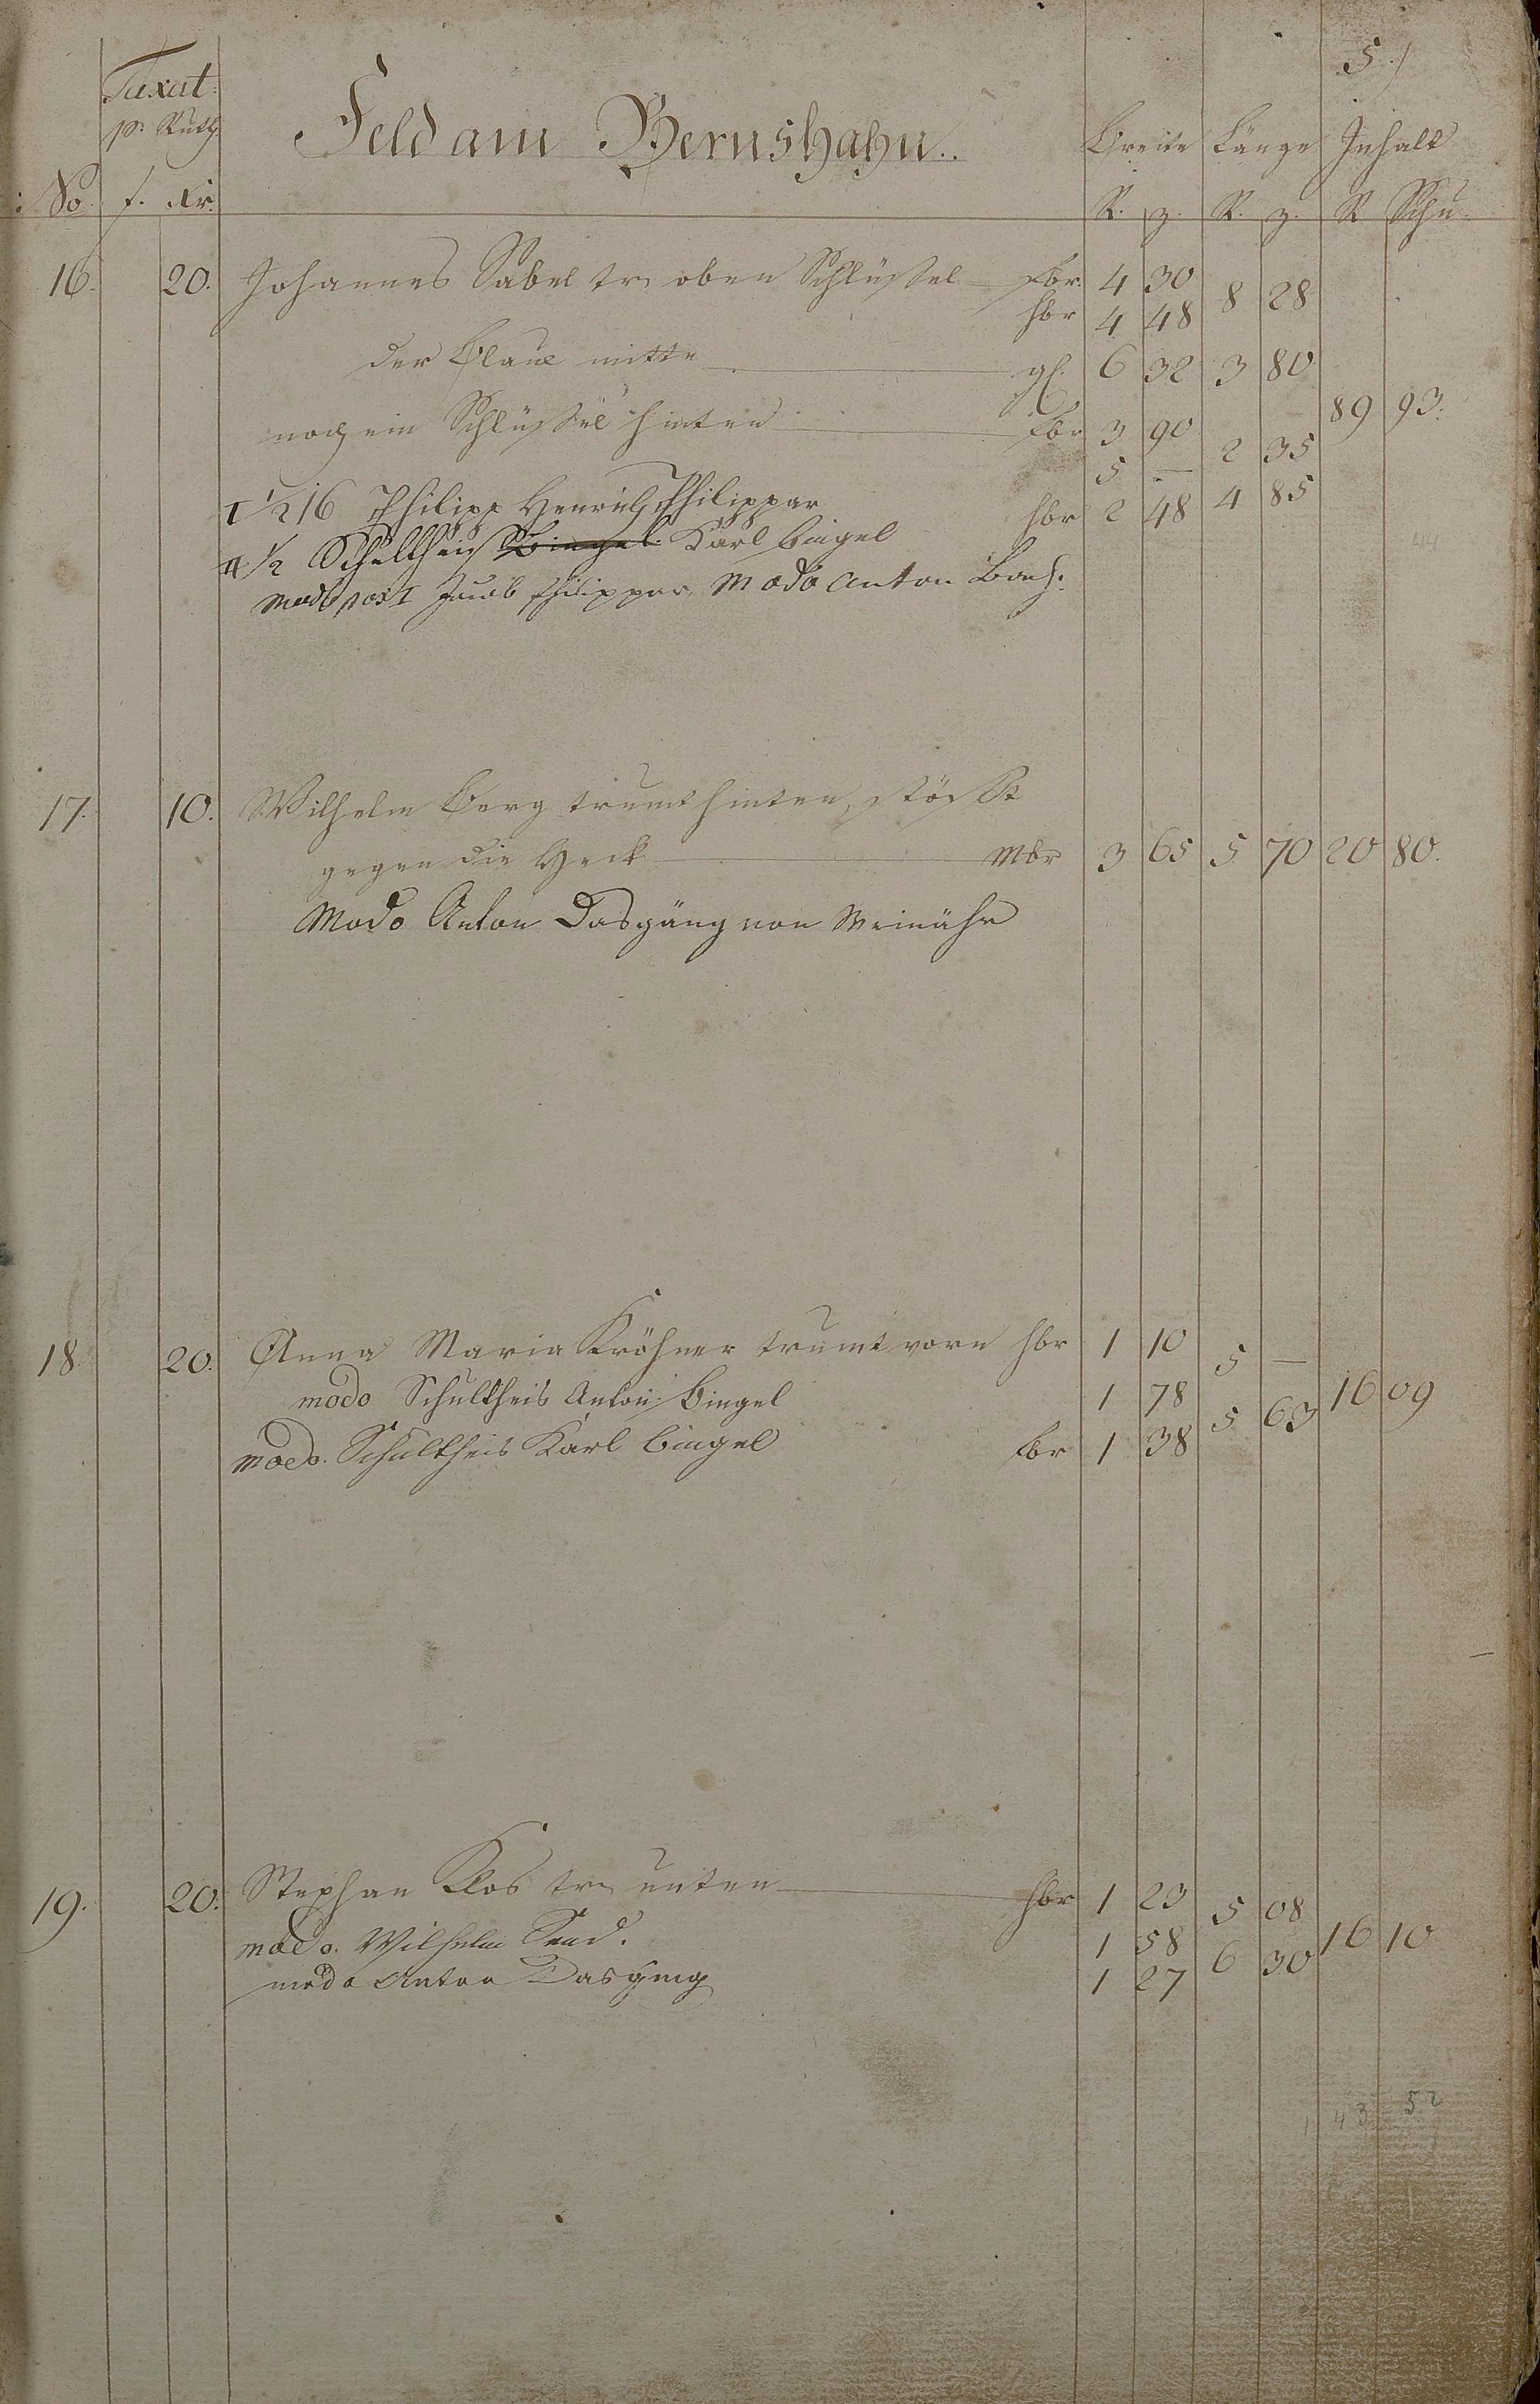 5.)
Taxat:
pr Ruth
Feld am Bernshahn..
Breite Länge Inhalt
No f. Xr. R. z. R. z. R Schu
16. 20. Johannes Sabel tr. oben Schlüssel fbr. 4 30
8 28
hbr 4 48
der Blaue mitte gl. 6 32 3 80
89 93.
noch ein Schlüssel hinten fbr 3 90
2 35
5 —
I 1/2 16 Philipp Henrich Philippar hbr 2 48 4 85
II 1/2 Schultheis Bingel Karl Bingel
modo pos I Jacob Philippar, modo Anton Bach.
17. 10. Wilhelm Berg trumt hinten, stößt
gegen die Heck mbr 3 65 5 70 20 80.
Modo Anton Dasgäng von Weinähr
18. 20. Anna Maria Kröhner trumt vorn hbr 1 10
5 —
modo Schultheis Anton Bingel 1 78
16 09
5 63
modo. Schultheis Karl Bingel fbr 1 38
19. 20. Stephan Klos tr. unten hbr 1 23
5 08
modo. Wilhelm 1 58
16 10
6 30
modo Anton Dasgeng 1 27
1 43 52